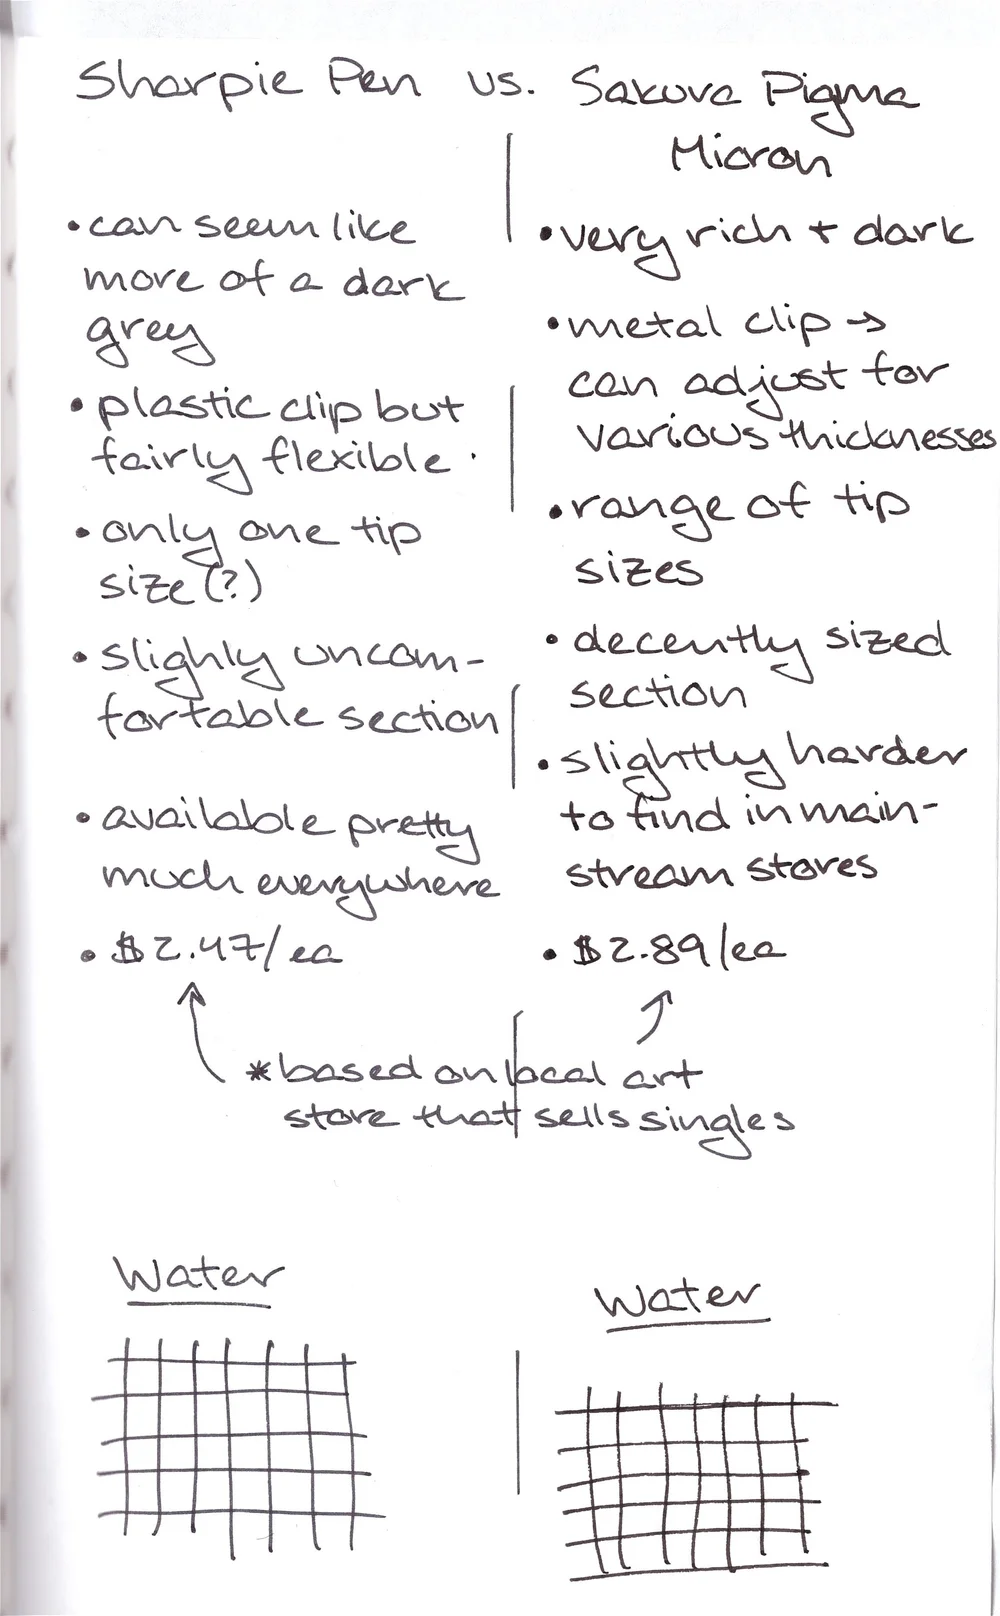 Sharpie Pen vs. Sakura Pigma
Micron
• can seem like
more of a dark
grey
• plastic clip but
fairly flexible.
• only one tip
size (?)
• slighly uncom-
fortable section
• available pretty
much everywhere
• $2.47/ea
• very rich + dark
• metal clip →
can adjust for
various thicknesses
• range of tip
sizes
• decently sized
section
• slightly harder
to find in main-
stream stores
• $2.89/ea
*based on local art
store that sells singles
Water
Water